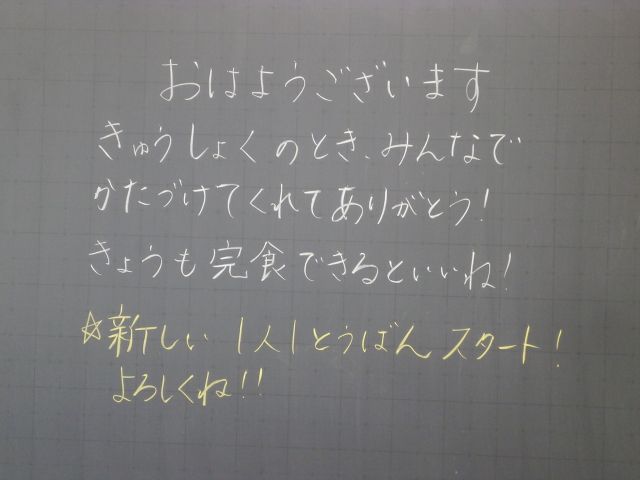 おはようございます
きゅうしょくのとき、みんなで
かたづけてくれてありがとう!
きょうも完食できるといいね!
☆新しい1人1とうばんスタート!
よろしくね!!